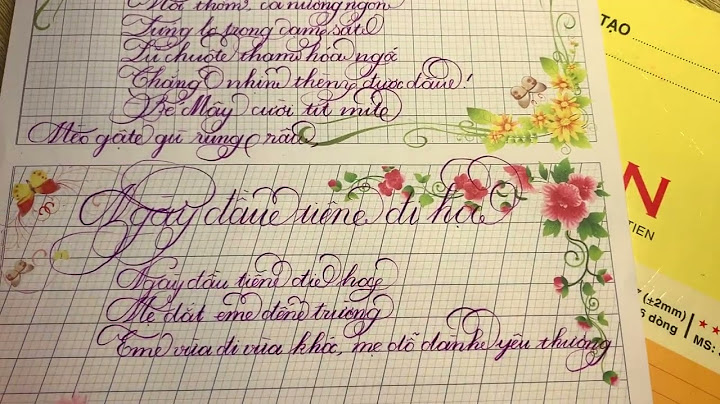 Mồi thơm: cá nướng ngon
Lửng lơ trong cạm sắt
Lũ chuột tham hóa ngốc
Chẳng nhịn thèm được đâu!
Bé Mây cười tít mắt
Mèo gật gù rung râu
Ngày đầu tiên đi học
Ngày đầu tiên đi học
Mẹ dắt em đến trường
Em vừa đi vừa khóc, mẹ dỗ dành yêu thương
TẠO
N
TIEN
(±2mm)
6 dòng
MS: